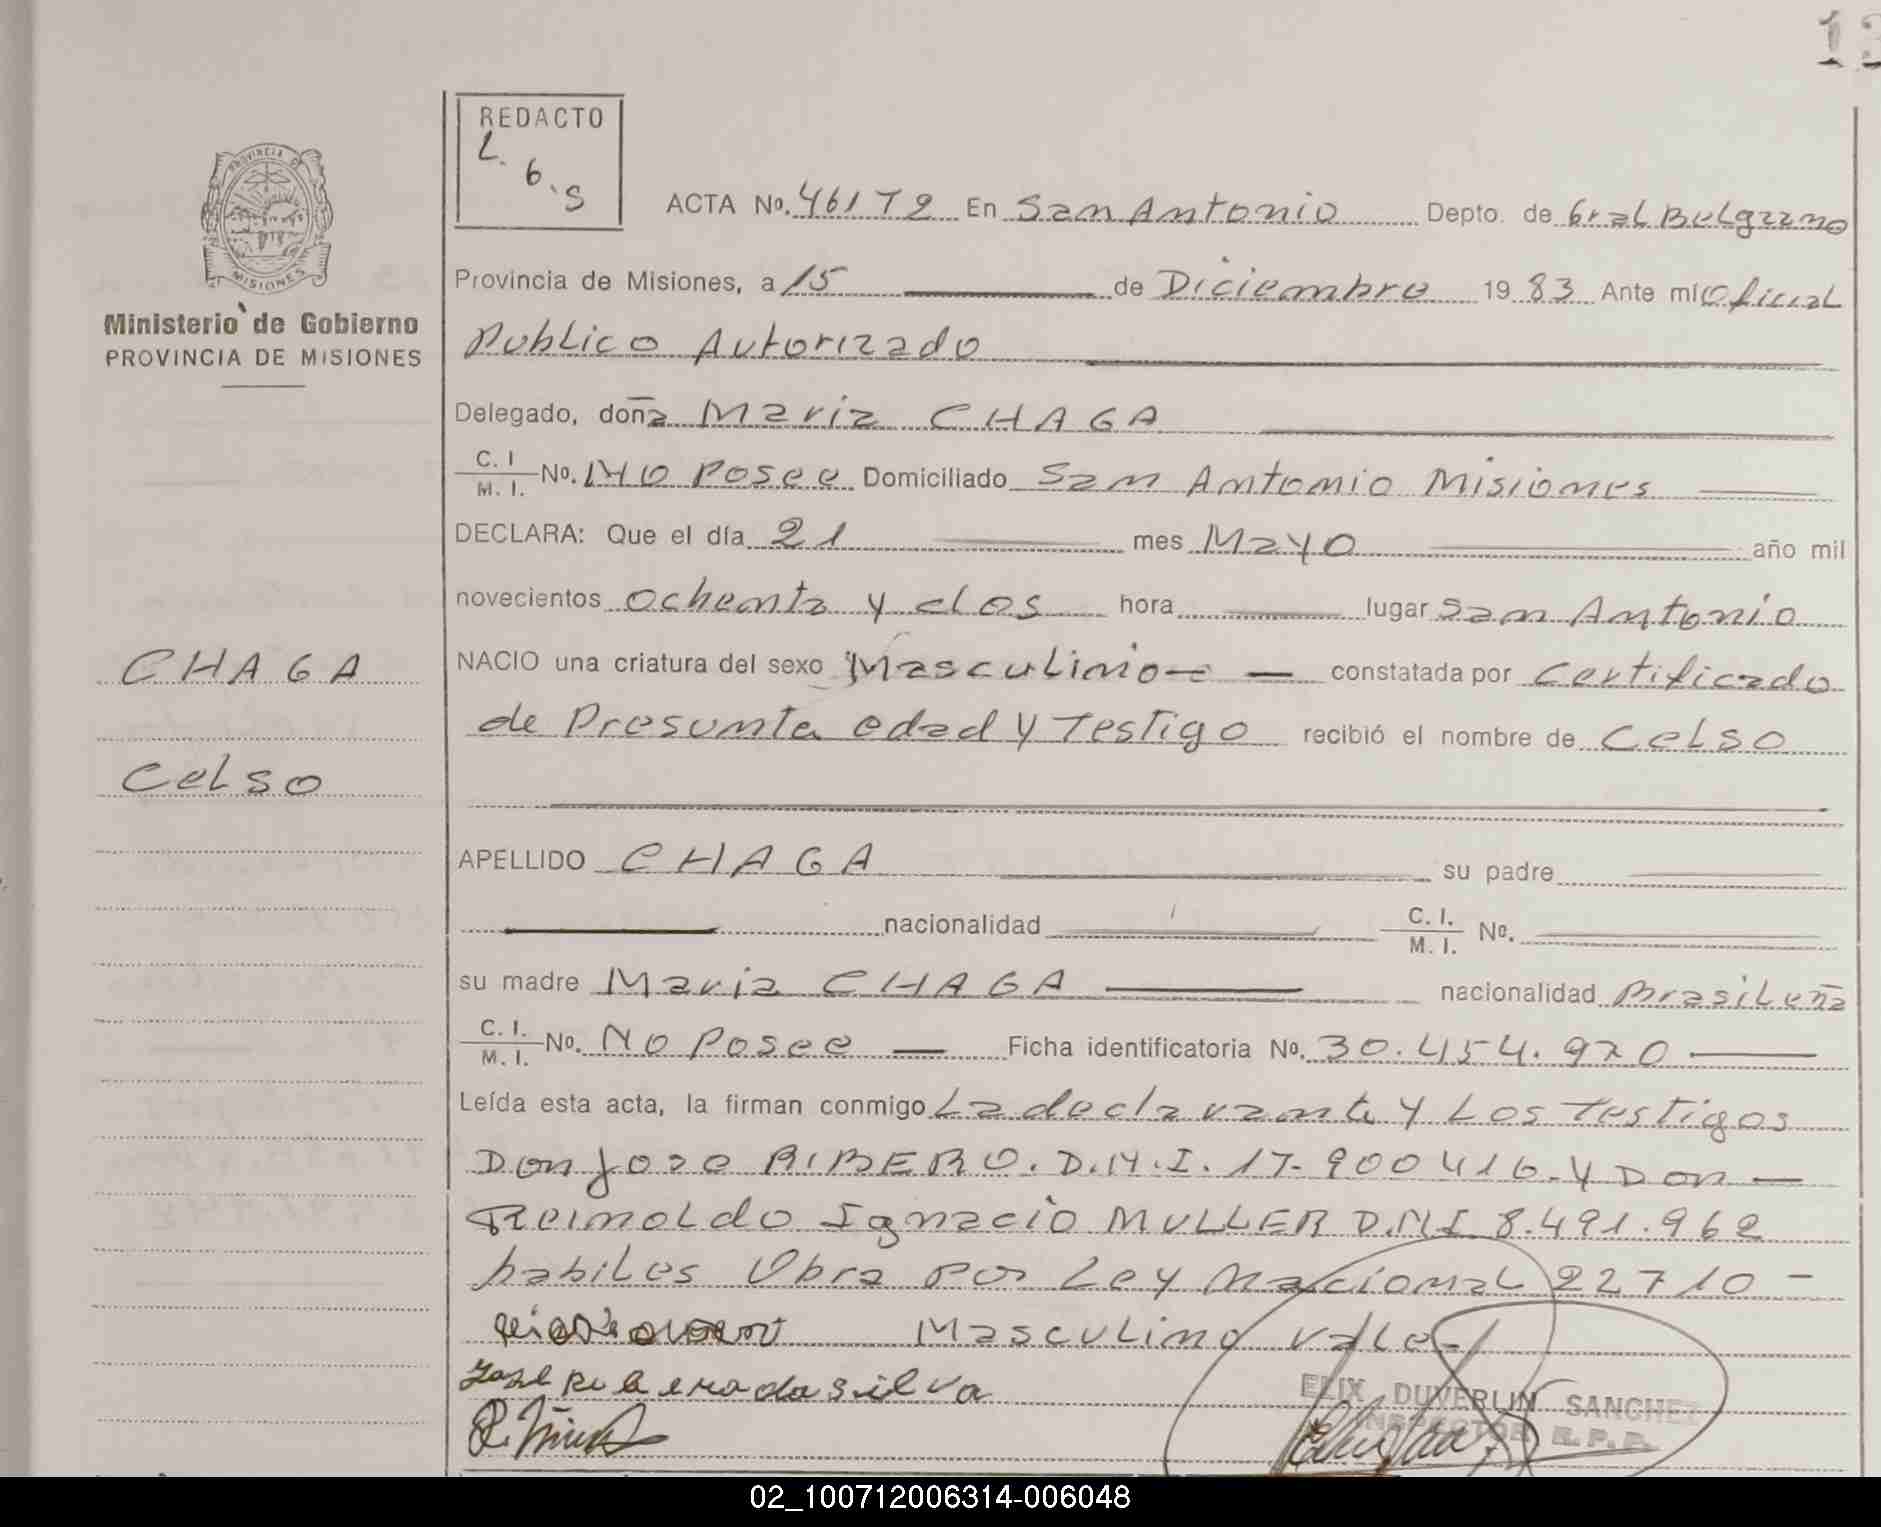 REDACTO
L. G. S
ACTA No. 46172 En San Antonio Depto. de Gral Belgrano
Provincia de Misiones, a 15 de Diciembre 1983 Ante mí Oficial
Publico Autorizado
Ministerio de Gobierno
PROVINCIA DE MISIONES
Delegado, doña Maria CHAGA
C. I. / M. I. No. No Posee Domiciliado San Antonio Misiones
DECLARA: Que el día 21 mes Mayo año mil
novecientos ochenta y dos hora lugar San Antonio
CHAGA
NACIO una criatura del sexo Masculino constatada por Certificado
de Presunta edad y Testigo recibió el nombre de Celso
Celso
APELLIDO CHAGA su padre
nacionalidad C. I. / M. I. No.
su madre Maria CHAGA nacionalidad Brasileña
C. I. / M. I. No. No Posee Ficha identificatoria No. 30.454.970
Leída esta acta, la firman conmigo La declarante y Los Testigos
Don Jose RIBERO. D.N.I. 17.900416. y Don
Reinoldo Ignacio MULLER D.N.I 8.491.962
habiles Obra por Ley Nacional 22710 -
Masculino vale
Jose Ribera da silva
ELIX DUVERLIN SANCHEZ
INSPECTOR R.P.P.
02_100712006314-006048